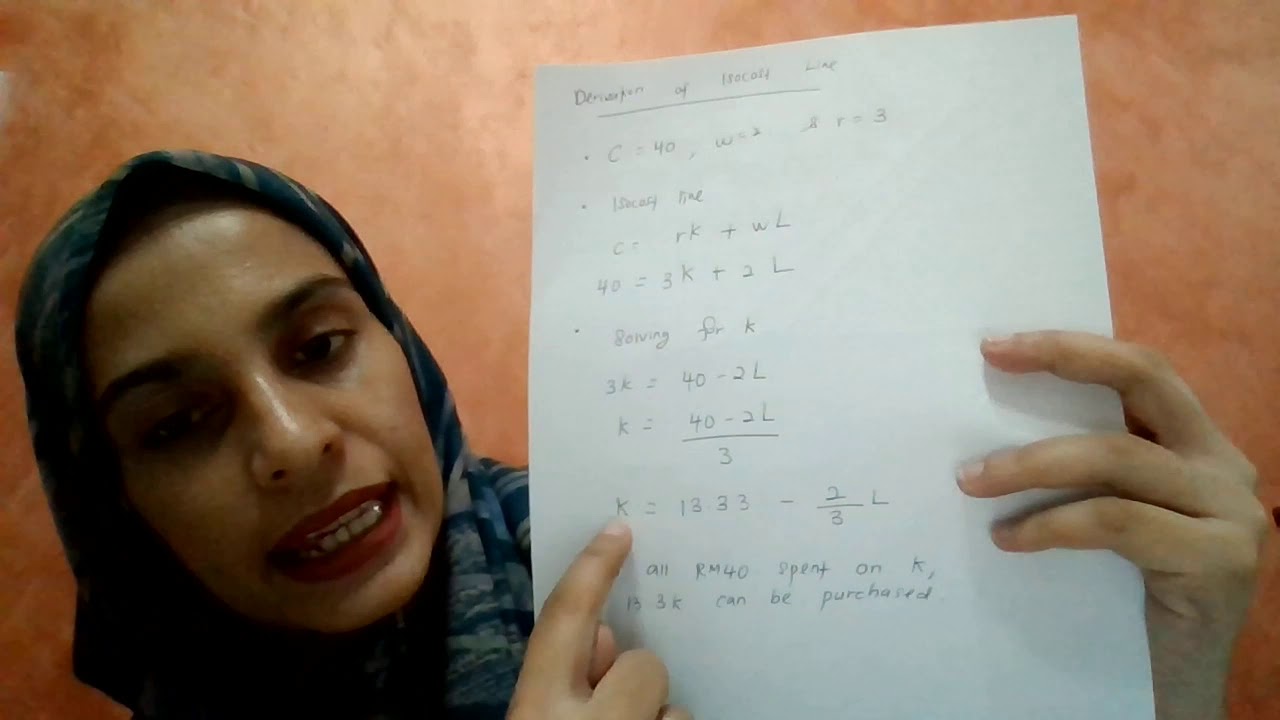 Derivation of Isocost Line
• C = 40, w = 2 & r = 3
• Isocost line
C = rK + wL
40 = 3K + 2L
• Solving for K
3K = 40 - 2L
K = 40 - 2L
3
K = 13.33 - 2/3 L
all RM40 spent on K,
13.3K can be purchased.